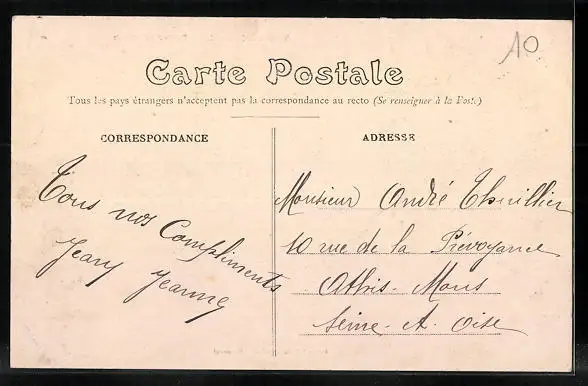 10
Carte Postale
Tous les pays étrangers n'acceptent pas la correspondance au recto (Se renseigner à la Poste)
CORRESPONDANCE
ADRESSE
Tous nos Compliments
Jeany Jeanne
Monsieur André Thuillier
10 rue de la Prévoyance
Athis-Mons
Seine-et-Oise